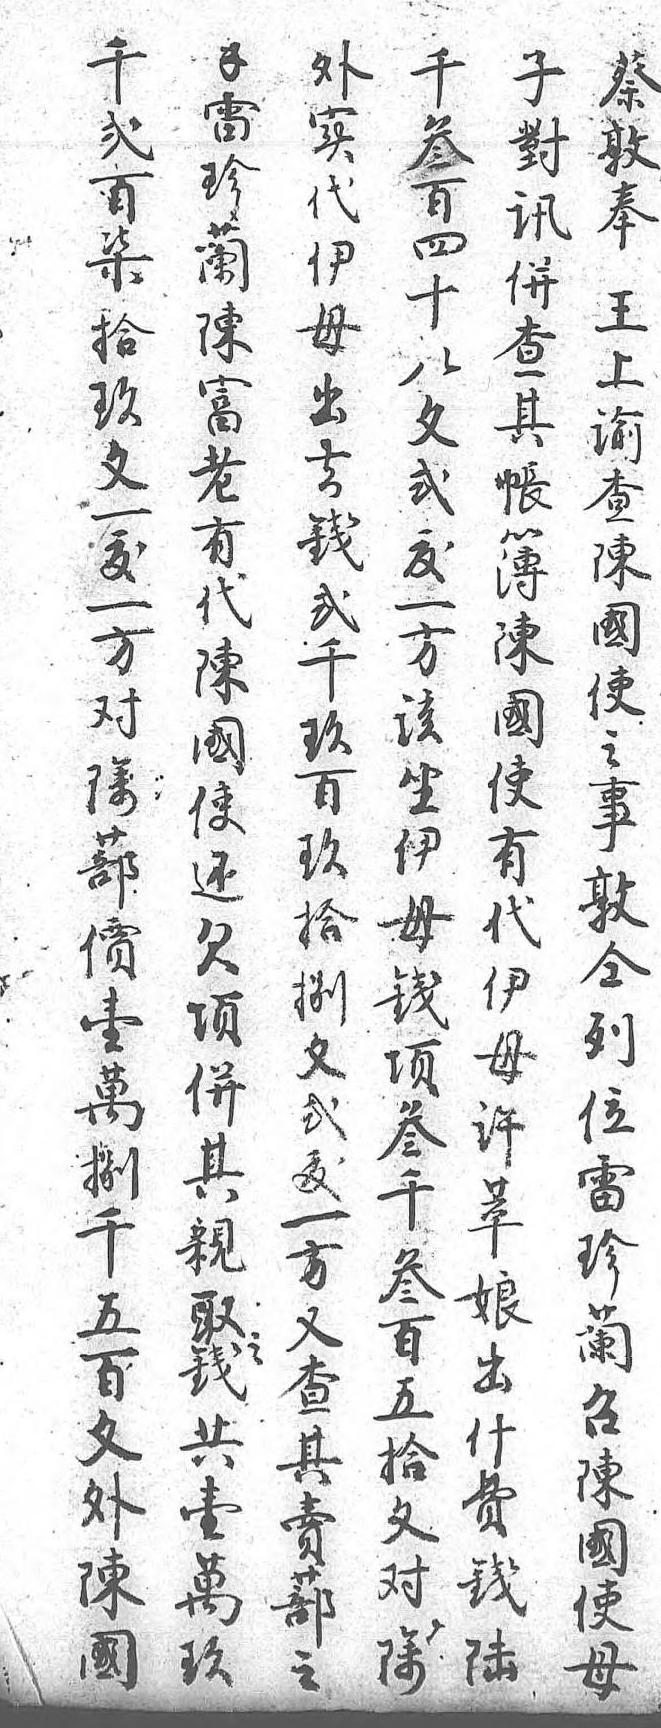 蔡敦奉王上諭查陳國使之事敦仝列位雷珍蘭召陳國使母
子對訊併查其帳簿陳國使有代伊母許草娘出什費錢陆
千叁百四十八文弍㕛一方該坐伊母錢項叁千叁百五拾文对除
外寔代伊母出去錢弍千玖百玖拾捌文弍㕛一方又查其賣蔀之
雷珍蘭陳富老有代陳國使还欠項併其親取之錢共壹萬玖
千弍百柒拾玖文一㕛一方对除蔀價壹萬捌千五百文外陳國